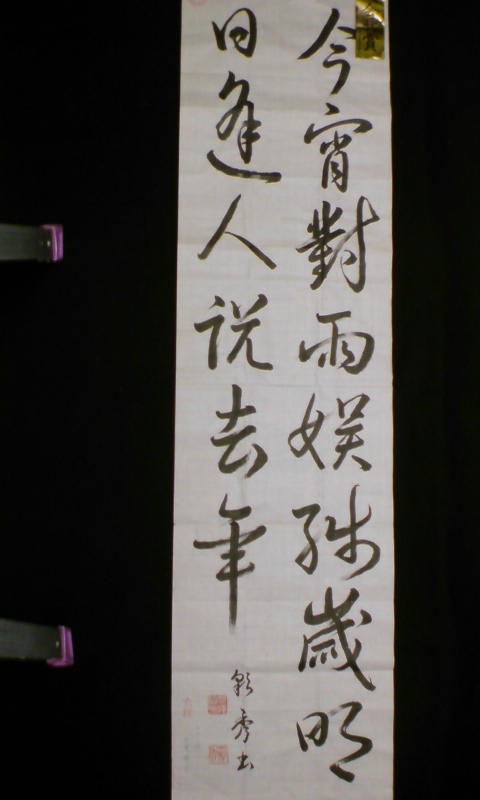 賞
今宵對雨娯残歳明
日逢人説去年
秀書